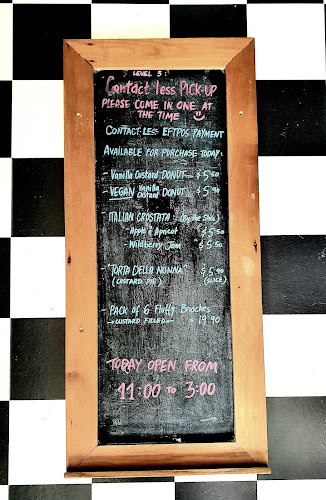 LEVEL 3:
Contact less PICK-UP
PLEASE COME IN ONE AT
THE TIME
CONTACT-LESS EFTPOS PAYMENT
AVAILABLE FOR PURCHASE TODAY:
- Vanilla Custard DONUT - $5.50
- VEGAN Vanilla Custard DONUT $5.50
ITALIAN CROSTATA: (By the Slice)
- Apple & Apricot $5.50
- Wildberry Jam $5.50
"TORTA DELLA NONNA" $5.90
(CUSTARD PIE) (SLICE)
PACK OF 6 Fluffy Brioches
- CUSTARD FILLED - $19.90
TODAY OPEN FROM
11:00 TO 3:00